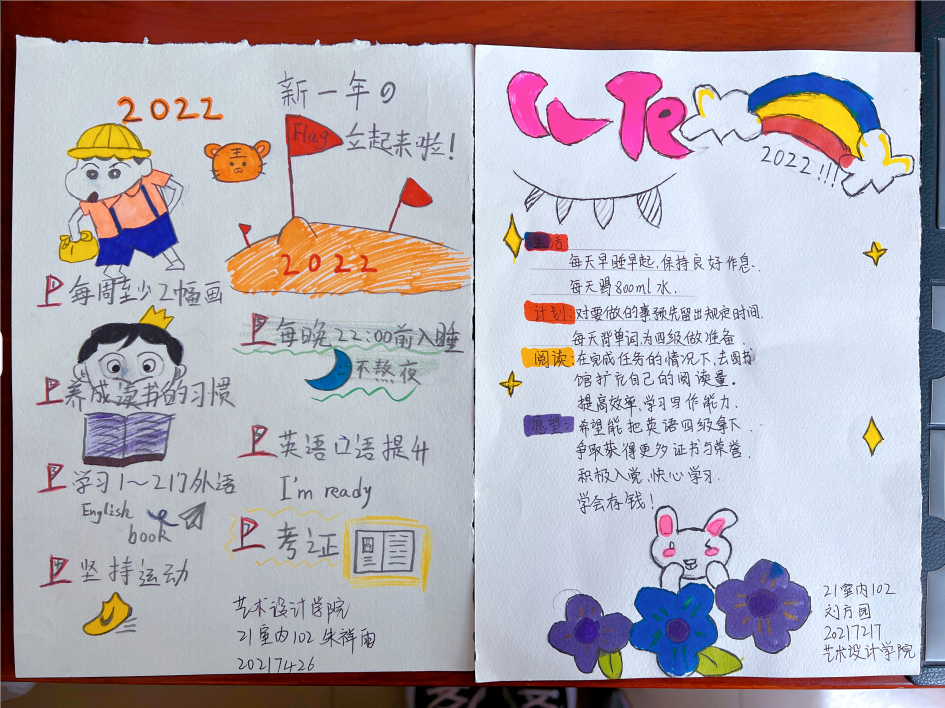 2022
新一年の
Flag
立起来啦!
王
2022
每周至少2幅画
每晚22:00前入睡
不熬夜
养成读书的习惯
英语口语提升
I'm ready
学习1~2门外语
English
book
考证
坚持运动
艺术设计学院
21室内102 朱祥雨
20217426
CUTe
2022!!!
生活
每天早睡早起,保持良好作息.
每天喝800ml水.
计划:对要做的事预先留出规定时间.
每天背单词,为四级做准备.
阅读:在完成任务的情况下,去图书
馆扩充自己的阅读量。
提高效率,学习写作能力.
愿望:希望能把英语四级拿下.
争取获得更多证书与荣誉.
积极入党,快心学习.
学会存钱!
21室内102
刘方园
20217217
艺术设计学院